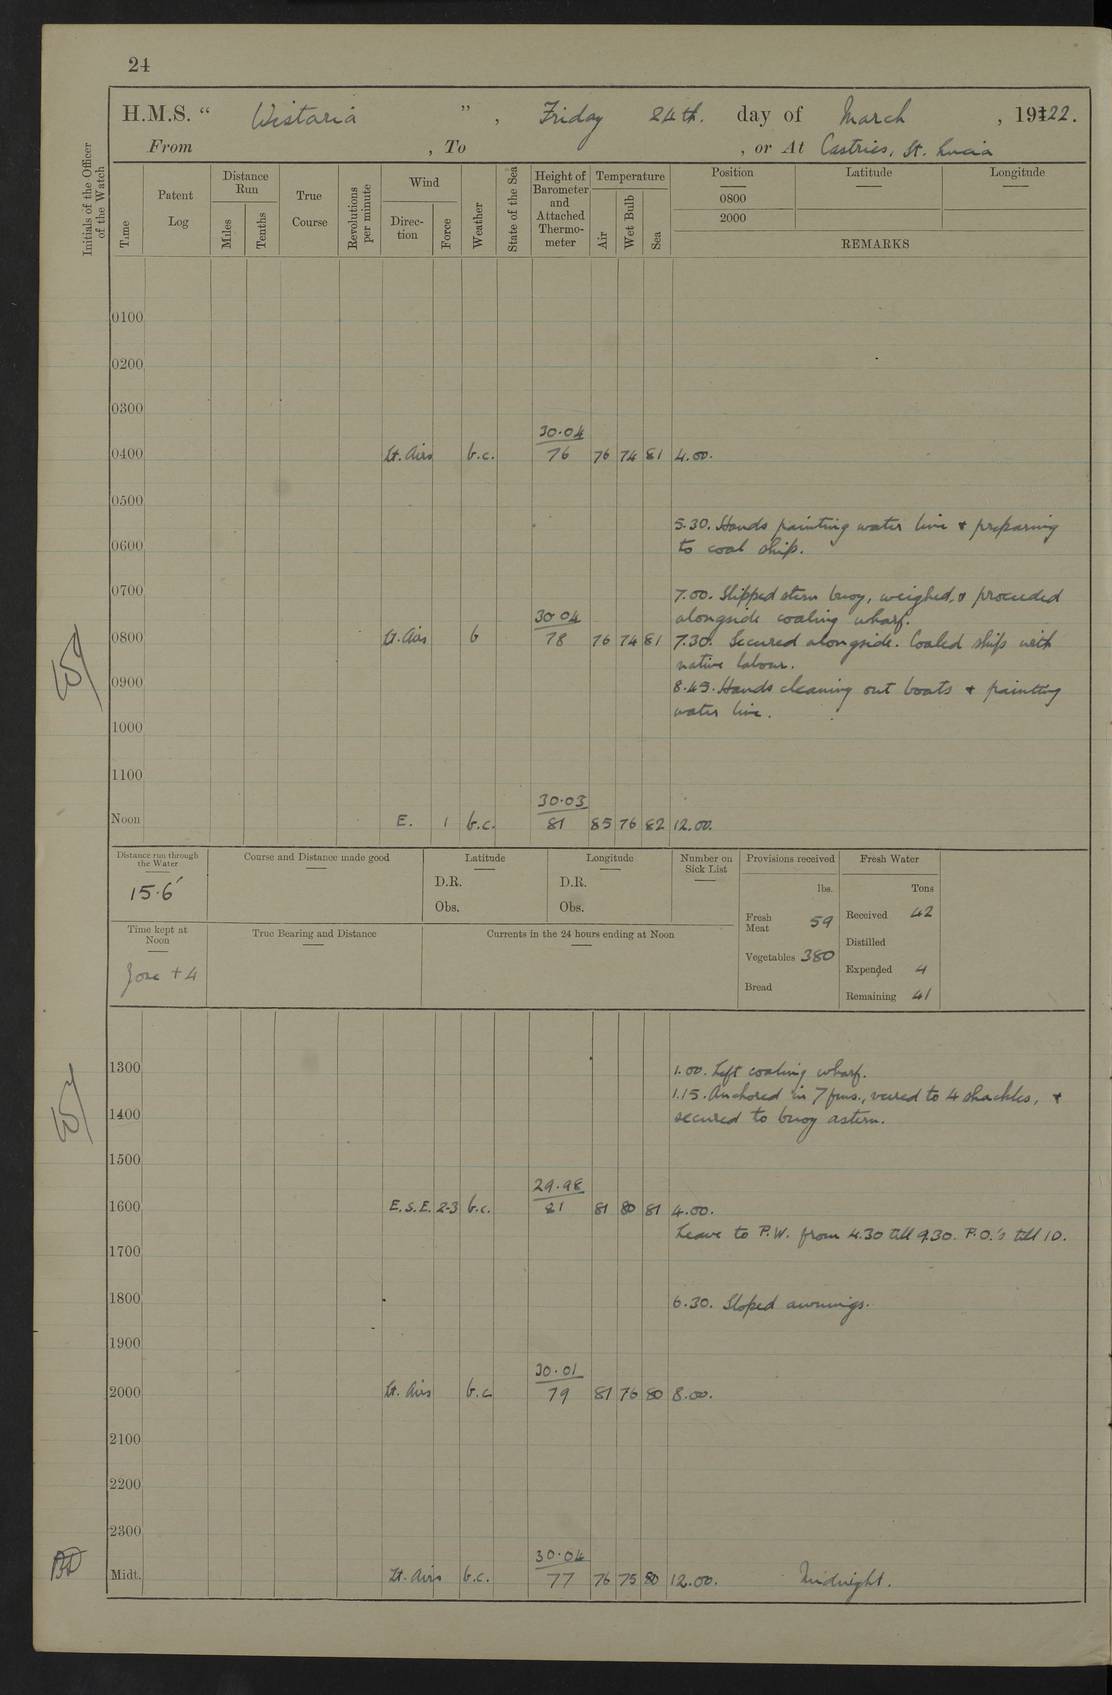 24
H.M.S. “ Wistaria ” , Friday 24th. day of March , 19122.
From , To , or At Castries, St. Lucia
Initials of the Officer of the Watch
Time
Patent Log
Distance Run
Miles
Tenths
True Course
Revolutions per minute
Wind
Direction
Force
Weather
State of the Sea
Height of Barometer and Attached Thermometer
Temperature
Air
Wet Bulb
Sea
Position Latitude Longitude
0800
2000
REMARKS
0100
0200
0300
30.04
0400 Lt. Airs b.c. 76 76 74 81 4.00.
0500
5.30. Hands painting water line & preparing
0600 to coal ship.
0700 7.00. Slipped stern buoy, weighed, & proceeded
30.04 alongside coaling wharf.
0800 Lt. Airs b 78 76 74 81 7.30. Secured alongside. Coaled ship with
native labour.
0900 8.45. Hands cleaning out boats & painting
water line.
1000
1100
30.03
Noon E. 1 b.c. 81 85 76 82 12.00.
Distance run through the Water
15.6'
Course and Distance made good
Latitude
D.R.
Obs.
Longitude
D.R.
Obs.
Number on Sick List
Provisions received
lbs.
Fresh Meat 59
Vegetables 380
Bread
Fresh Water
Tons
Received 42
Distilled
Expended 4
Remaining 41
Time kept at Noon
Zone + 4
True Bearing and Distance
Currents in the 24 hours ending at Noon
1300 1.00. Left coaling wharf.
1.15. Anchored in 7 fms., veered to 4 shackles, &
1400 secured to buoy astern.
1500
29.98
1600 E.S.E. 2-3 b.c. 81 81 80 81 4.00.
Leave to P.W. from 4.30 till 9.30. P.O.'s till 10.
1700
1800 6.30. Sloped awnings.
1900
30.01
2000 Lt. Airs b.c 79 81 76 80 8.00.
2100
2200
2300
30.04
Midt. Lt. Airs b.c. 77 76 75 80 12.00. Midnight.